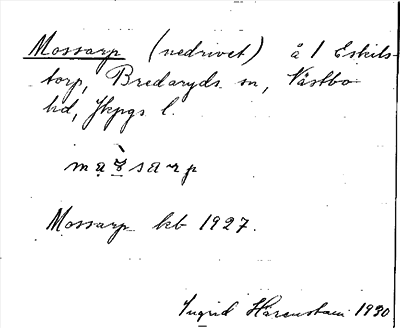 Mossarp (nedrivet) å 1 Eskils-
torp, Bredaryds sn, Västbo
hd, Jkpgs l.
Mossarp kb 1927.
Ingrid Härenstam 1930